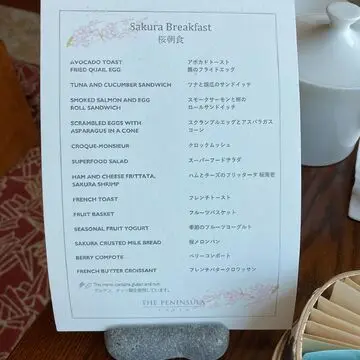 Sakura Breakfast
桜朝食
AVOCADO TOAST アボカドトースト
FRIED QUAIL EGG 鶉のフライドエッグ
TUNA AND CUCUMBER SANDWICH ツナと胡瓜のサンドイッチ
SMOKED SALMON AND EGG スモークサーモンと卵の
ROLL SANDWICH ロールサンドイッチ
SCRAMBLED EGGS WITH スクランブルエッグとアスパラガス
ASPARAGUS IN A CONE コーン
CROQUE-MONSIEUR クロックムッシュ
SUPERFOOD SALAD スーパーフードサラダ
HAM AND CHEESE FRITTATA, ハムとチーズのフリッタータ 桜海老
SAKURA SHRIMP
FRENCH TOAST フレンチトースト
FRUIT BASKET フルーツバスケット
SEASONAL FRUIT YOGURT 季節のフルーツヨーグルト
SAKURA CRUSTED MILK BREAD 桜メロンパン
BERRY COMPOTE ベリーコンポート
FRENCH BUTTER CROISSANT フレンチバタークロワッサン
This menu contains gluten and nut
THE PENINSULA
TOKYO